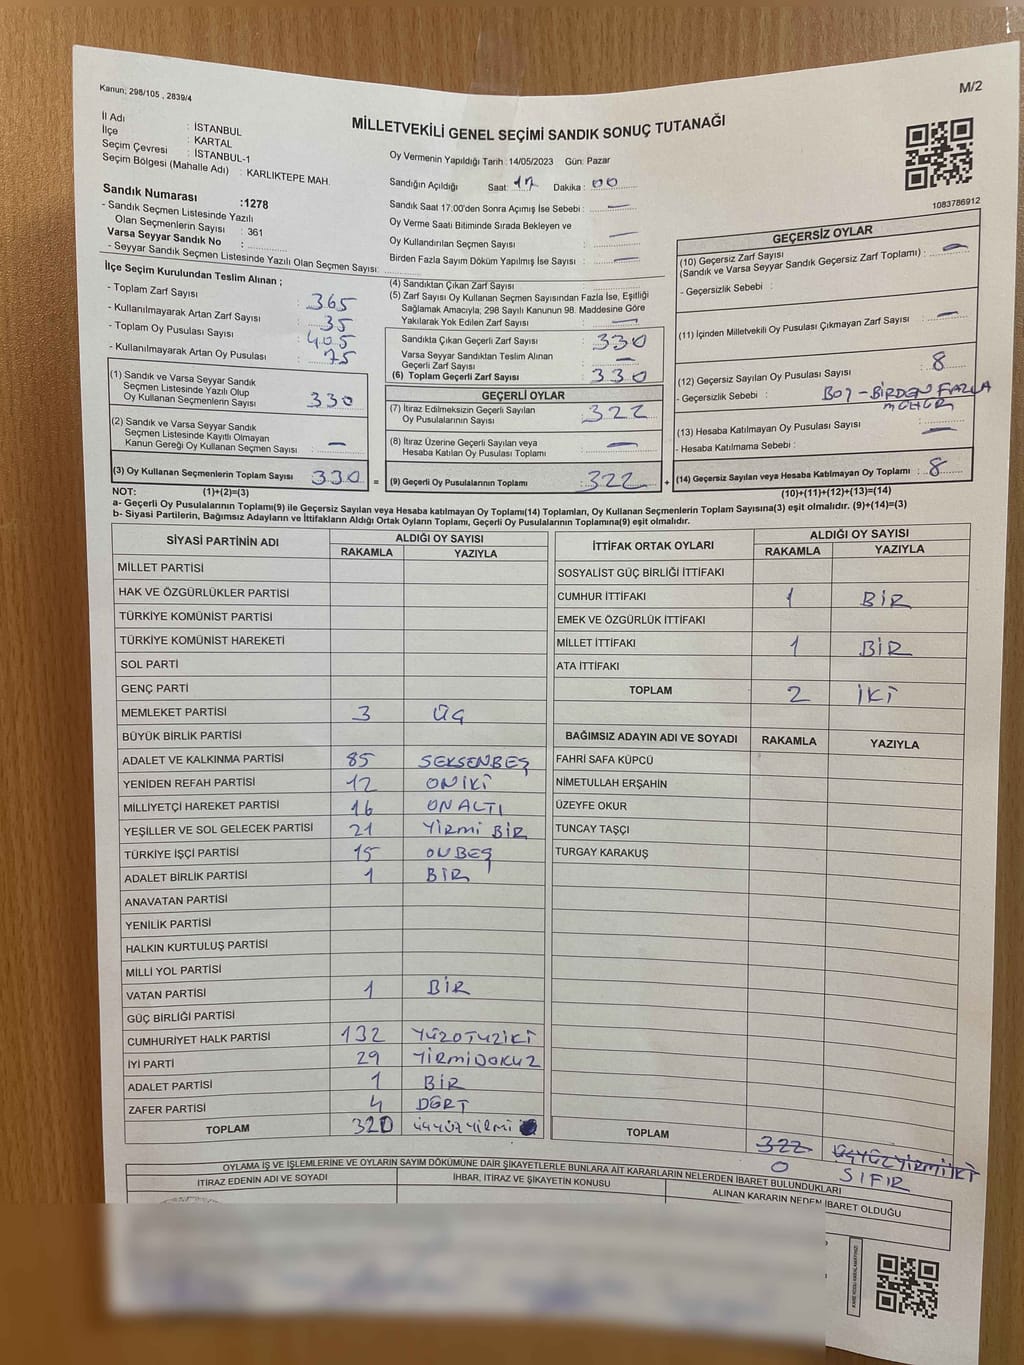 Kanun; 298/105 , 2839/4
M/2
MİLLETVEKİLİ GENEL SEÇİMİ SANDIK SONUÇ TUTANAĞI
İl Adı : İSTANBUL
İlçe : KARTAL
Seçim Çevresi : İSTANBUL-1
Seçim Bölgesi (Mahalle Adı) : KARLIKTEPE MAH.
Sandık Numarası :1278
- Sandık Seçmen Listesinde Yazılı
Olan Seçmenlerin Sayısı : 361
Varsa Seyyar Sandık No :
- Seyyar Sandık Seçmen Listesinde Yazılı Olan Seçmen Sayısı:
Oy Vermenin Yapıldığı Tarih :14/05/2023 Gün: Pazar
Sandığın Açıldığı Saat: 17 Dakika : 00
Sandık Saat 17:00'den Sonra Açımış İse Sebebi : —
Oy Verme Saati Bitiminde Sırada Bekleyen ve
Oy Kullandırılan Seçmen Sayısı : —
Birden Fazla Sayım Döküm Yapılmış İse Sayısı : —
1083786912
İlçe Seçim Kurulundan Teslim Alınan ;
- Toplam Zarf Sayısı : 365
- Kullanılmayarak Artan Zarf Sayısı : 35
- Toplam Oy Pusulası Sayısı : 405
- Kullanılmayarak Artan Oy Pusulası : 75
(1) Sandık ve Varsa Seyyar Sandık
Seçmen Listesinde Yazılı Olup
Oy Kullanan Seçmenlerin Sayısı : 330
(2) Sandık ve Varsa Seyyar Sandık
Seçmen Listesinde Kayıtlı Olmayan
Kanun Gereği Oy Kullanan Seçmen Sayısı : —
(3) Oy Kullanan Seçmenlerin Toplam Sayısı : 330 =
(4) Sandıktan Çıkan Zarf Sayısı :
(5) Zarf Sayısı Oy Kullanan Seçmen Sayısından Fazla İse, Eşitliği
Sağlamak Amacıyla; 298 Sayılı Kanunun 98. Maddesine Göre
Yakılarak Yok Edilen Zarf Sayısı : —
Sandıkta Çıkan Geçerli Zarf Sayısı : 330
Varsa Seyyar Sandıktan Teslim Alınan
Geçerli Zarf Sayısı : —
(6) Toplam Geçerli Zarf Sayısı : 330
GEÇERLİ OYLAR
(7) İtiraz Edilmeksizin Geçerli Sayılan
Oy Pusulalarının Sayısı : 322
(8) İtiraz Üzerine Geçerli Sayılan veya
Hesaba Katılan Oy Pusulası Toplamı : —
(9) Geçerli Oy Pusulalarının Toplamı : 322 +
GEÇERSİZ OYLAR
(10) Geçersiz Zarf Sayısı
(Sandık ve Varsa Seyyar Sandık Geçersiz Zarf Toplamı) : —
- Geçersizlik Sebebi :
(11) İçinden Milletvekili Oy Pusulası Çıkmayan Zarf Sayısı : —
(12) Geçersiz Sayılan Oy Pusulası Sayısı : 8
- Geçersizlik Sebebi : BOŞ - BİRDEN FAZLA
MÜHÜR
(13) Hesaba Katılmayan Oy Pusulası Sayısı : —
- Hesaba Katılmama Sebebi :
(14) Geçersiz Sayılan veya Hesaba Katılmayan Oy Toplamı : 8
NOT: (1)+(2)=(3) (10)+(11)+(12)+(13)=(14)
a- Geçerli Oy Pusulasının Toplamı(9) ile Geçersiz Sayılan veya Hesaba katılmayan Oy Toplamı(14) Toplamları, Oy Kullanan Seçmenlerin Toplam Sayısına(3) eşit olmalıdır. (9)+(14)=(3)
b- Siyasi Partilerin, Bağımsız Adayların ve İttifakların Aldığı Ortak Oyların Toplamı, Geçerli Oy Pusulalarının Toplamına(9) eşit olmalıdır.
SİYASİ PARTİNİN ADI ALDIĞI OY SAYISI
RAKAMLA YAZIYLA
MİLLET PARTİSİ
HAK VE ÖZGÜRLÜKLER PARTİSİ
TÜRKİYE KOMÜNİST PARTİSİ
TÜRKİYE KOMÜNİST HAREKETİ
SOL PARTİ
GENÇ PARTİ
MEMLEKET PARTİSİ 3 ÜÇ
BÜYÜK BİRLİK PARTİSİ
ADALET VE KALKINMA PARTİSİ 85 SEKSENBEŞ
YENİDEN REFAH PARTİSİ 12 ONİKİ
MİLLİYETÇİ HAREKET PARTİSİ 16 ONALTI
YEŞİLLER VE SOL GELECEK PARTİSİ 21 YİRMİ BİR
TÜRKİYE İŞÇİ PARTİSİ 15 ONBEŞ
ADALET BİRLİK PARTİSİ 1 BİR
ANAVATAN PARTİSİ
YENİLİK PARTİSİ
HALKIN KURTULUŞ PARTİSİ
MİLLİ YOL PARTİSİ
VATAN PARTİSİ 1 BİR
GÜÇ BİRLİĞİ PARTİSİ
CUMHURİYET HALK PARTİSİ 132 YÜZOTUZİKİ
İYİ PARTİ 29 YİRMİDOKUZ
ADALET PARTİSİ 1 BİR
ZAFER PARTİSİ 4 DÖRT
TOPLAM 320 ÜÇYÜZYİRMİ
İTTİFAK ORTAK OYLARI ALDIĞI OY SAYISI
RAKAMLA YAZIYLA
SOSYALİST GÜÇ BİRLİĞİ İTTİFAKI
CUMHUR İTTİFAKI 1 BİR
EMEK VE ÖZGÜRLÜK İTTİFAKI
MİLLET İTTİFAKI 1 BİR
ATA İTTİFAKI
TOPLAM 2 İKİ
BAĞIMSIZ ADAYIN ADI VE SOYADI RAKAMLA YAZIYLA
FAHRİ SAFA KÜPCÜ
NİMETULLAH ERŞAHİN
ÜZEYFE OKUR
TUNCAY TAŞÇI
TURGAY KARAKUŞ
TOPLAM 322 ÜÇYÜZYİRMİİKİ
0 SIFIR
OYLAMA İŞ VE İŞLEMLERİNE VE OYLARIN SAYIM DÖKÜMÜNE DAİR ŞİKAYETLERLE BUNLARA AİT KARARLARIN NELERDEN İBARET BULUNDUKLARI
İTİRAZ EDENİN ADI VE SOYADI İHBAR, İTİRAZ VE ŞİKAYETİN KONUSU ALINAN KARARIN NEDEN İBARET OLDUĞU